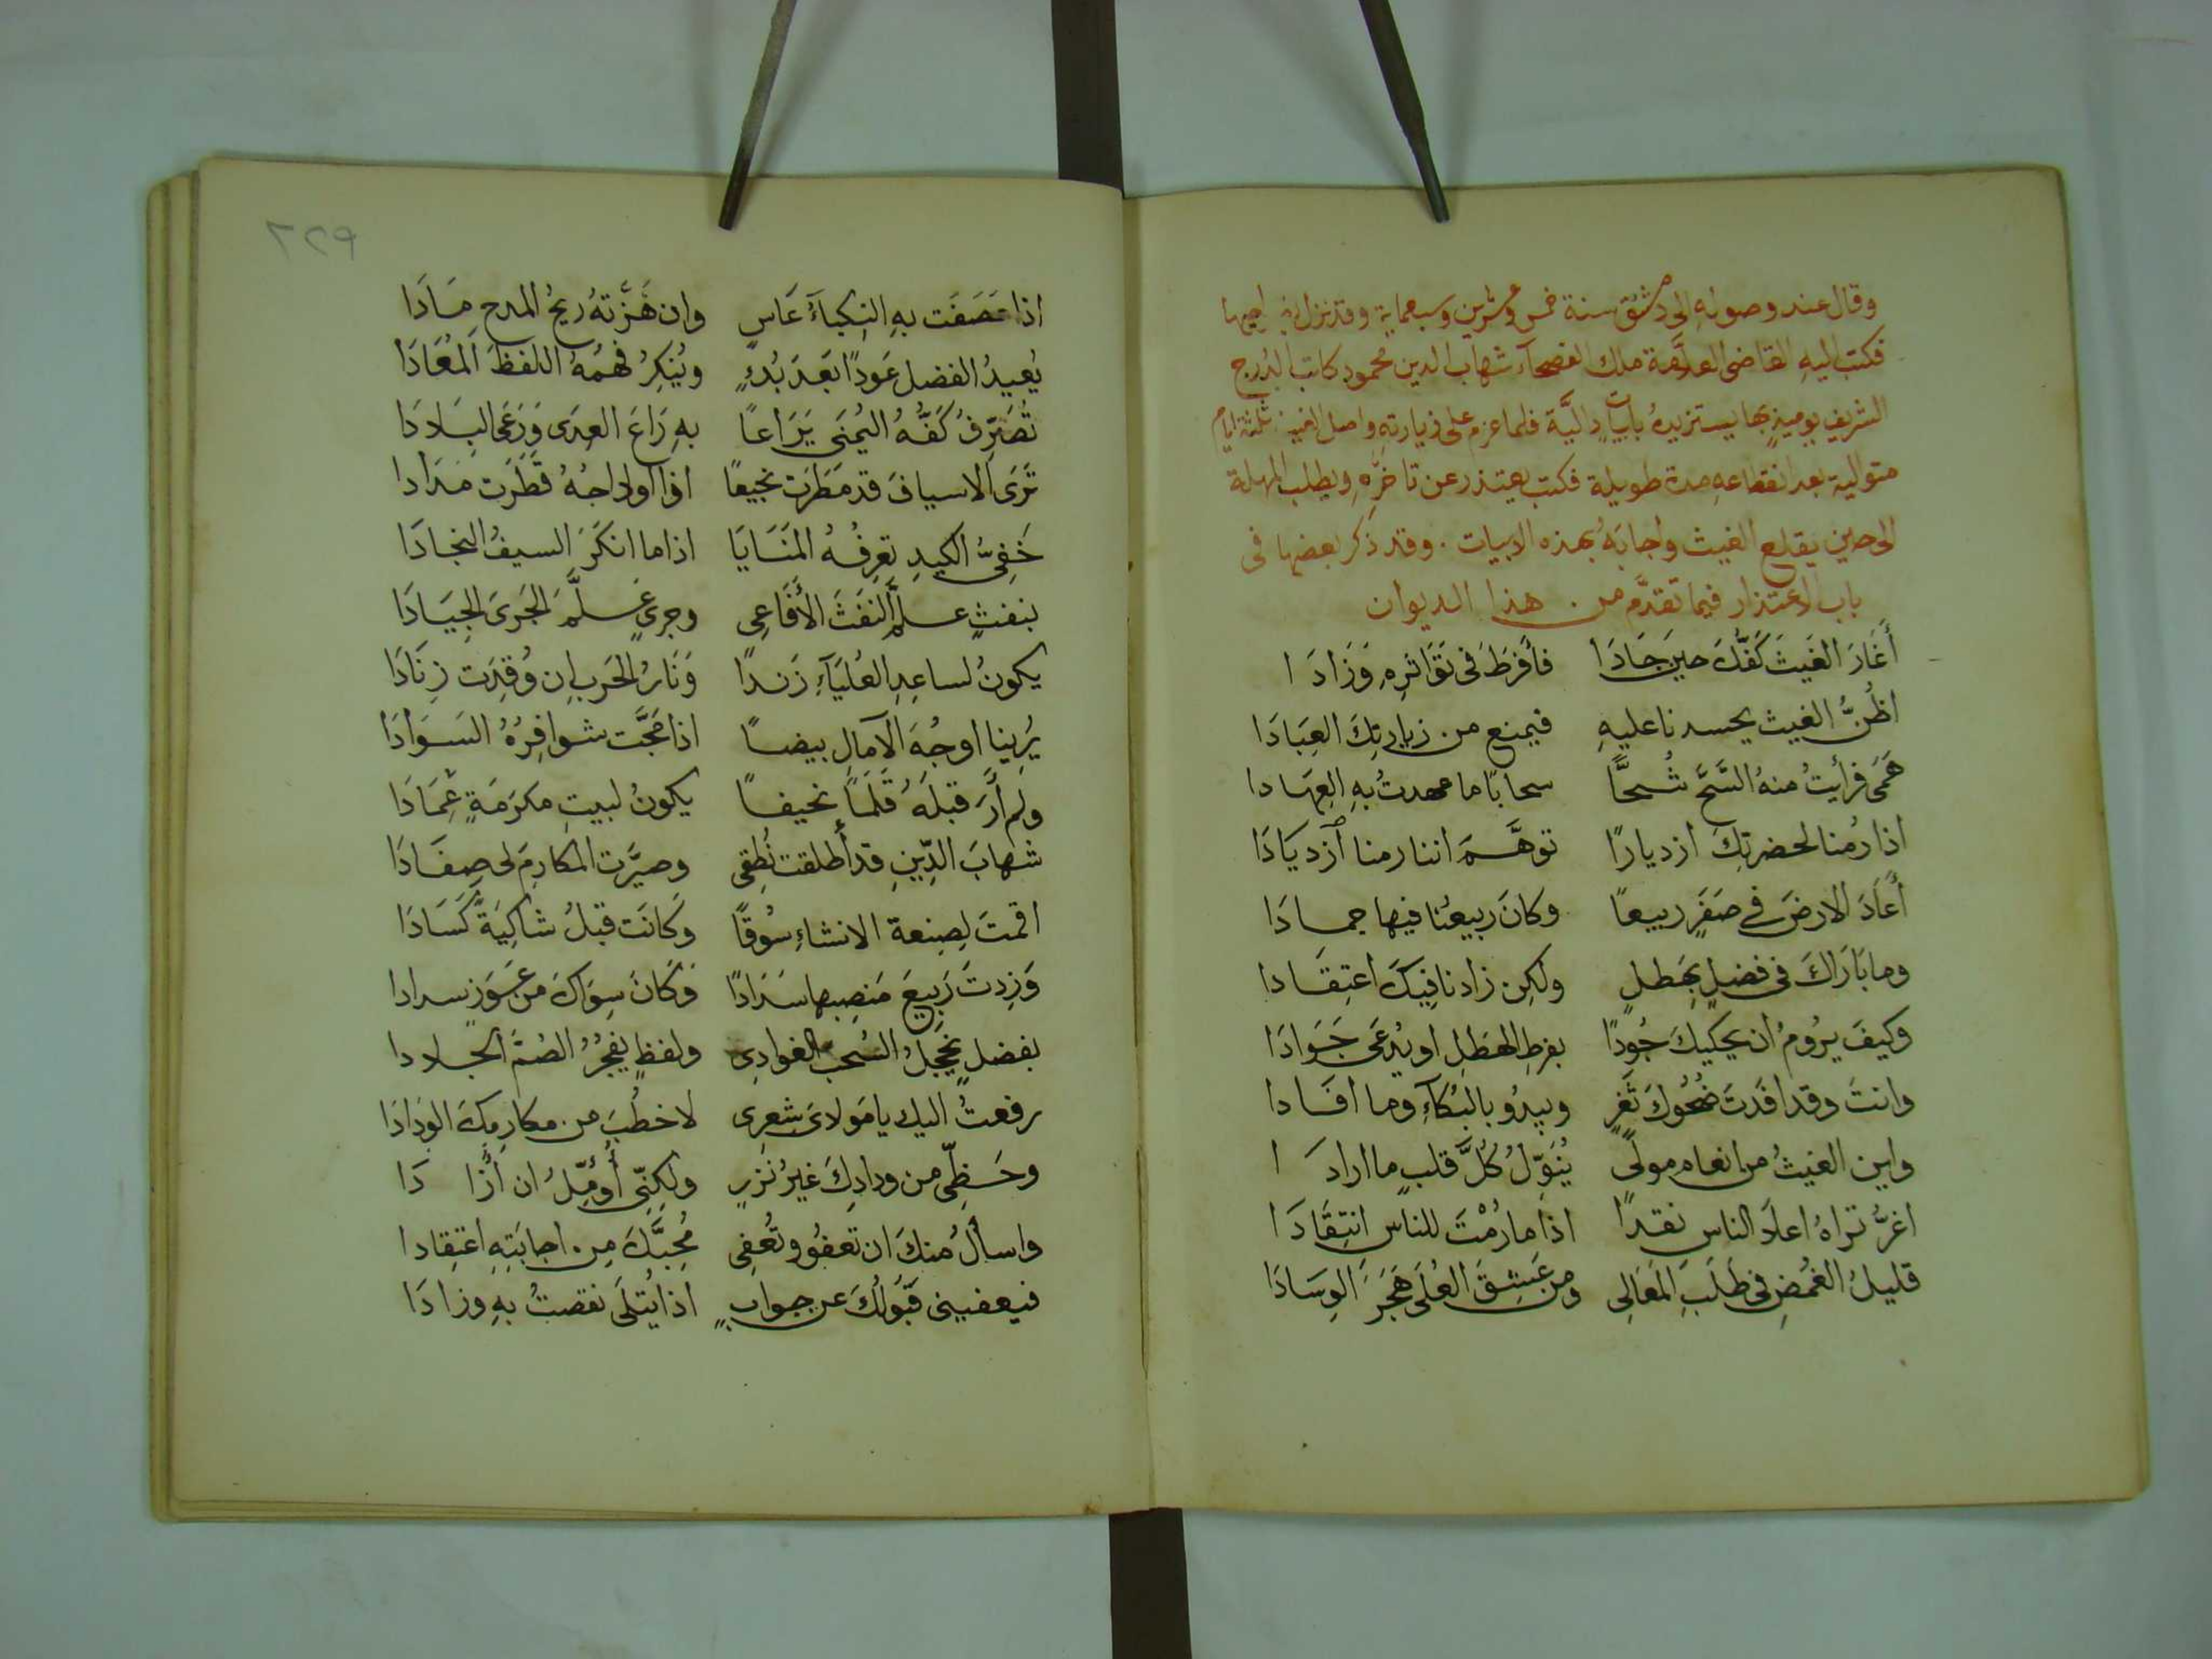 وقال عند وصوله الى دمشق سنة خمس وعشرين وسبعماية وقد نزل
فكتب اليهِ القاضى العلامة ملك الفصحآء شهاب الدين محمود كاتب الدرج
الشريف يوميذٍ بها يستزيدهُ بابياتٍ داليَّة فلما عزم على زيارتهِ واصل الغيث ثلثة ايام
متوالية بعد انقطاعهِ مدة طويلة فكتب يعتذر عن تاخرهِ ويطلب المهلة
الى حين يقلع الغيث واجابهُ بهذه الابيات . وقد ذكر بعضها فى
باب الاعتذار فيما تقدَّم من هذا الديوان
أَغَارَ الغَيثَ كَفُّكَ حينَ جَادَا فأفرَطَ فى تَوَاتُرِهِ وَزَادَا
اظُنُّ الغيث يحسدنا عليهِ فيمنع من زيارتِكَ العِبَادَا
هَمَى فرأيتُ منهُ السَّحَّ شُحًّا سحابًا ما عهدتُ بهِ العِهَادا
اذا رُمنا لحضرتِكَ ازديارًا توهَّمَ اننا رمنا ازديَادَا
أَعَادَ الارضَ فى صَفَرٍ ربيعًا وكانَ ربيعُنا فيها جمادَا
وما بَارَاكَ فى فضلٍ بِهَطلٍ ولكِن زادنا فِيكَ اعتِقَادا
وكيفَ يرُومُ ان يحكيكَ جُودًا بفرطِ الهطلِ او يُدعَى جَوَادَا
وانتَ وقد افَدتَ ضَحُوكَ ثَغرٍ ويبدُو بالبُكآءِ وما افَادا
واين الغيثُ من انعام مولًى يُنَوِّلُ كُلَّ قلبٍ ما ارادَا
اغرُّ تراهُ اعلا الناس نقدًا اذا ما رُمْتَ للناسِ انتِقَادَا
قليلُ الغُمضِ فى طَلَبِ المَعَالِى ومن عَشِقَ العُلَى هَجَرَ الوِسَادَا
٢٢٩
اذا عَصَفَت بهِ النكبآءُ عَاسٍ وان هَزَّتهُ ريحُ المدح مَادَا
يُعيدُ الفضل عَودًا بَعدَ بُدءٍ ويُنكِرُ فهمُهُ اللفظَ المُعَادَا
تُصَرِّفُ كَفُّهُ اليُمنَى يَرَاعًا بهِ رَاعَ العِدَى وَرَعَى البِلَادَا
تَرَى الاسيافَ قد مَطَرَت نجيعًا اذا اوداجُهُ قَطَرَت مدَادا
خَفِىُّ الكيدِ تعرِفُهُ المَنَايَا اذا ما انكَرَ السيفُ النجادَا
بنفثٍ علَّمَ النَفثَ الأَفَاعِى وجرىٍ علَّمَ الجَرىَ الجِيَادَا
يكونُ لساعدِ العُليَآءِ زَندًا وَنَارُ الحَرب ان وُقِدَت زِنَادَا
يُرِينا اوجُهَ الآمالِ بيضًا اذا مَجَّت شوافِرُهُ السَوَادَا
ولم أَرَ قبلَهُ قَلَمًا نحيفًا يكونُ لبيتِ مكرَمَةٍ عِمَادَا
شهابَ الدِّينِ قد أَطلقت نُطقِى وصيَّرت المكارِمَ لى صِفَادَا
اقمتَ لصِنعة الانشاءِ سُوقًا وَكانَت قبلُ شاكِيَةً كَسَادَا
وَزِدتَ رَبِيعَ مَنصِبها سَدَادًا وَكَانَ سِوَاكَ من عَوَزٍ سدادا
بفضلٍ يُخجِلُ السُّحب الغوادِى ولفظٍ يفجُرُ الصُمَّ الجلادا
رفعتُ اليك يا مَولاىَ شِعرِى لاخطُبَ من مكارِمِكَ الوِدَادَا
وحَظِّى من ودادِكَ غيرُ نَزرٍ ولكِنِّى أُوَمِّلُ ان أُزَادَا
واسألُ منكَ ان تعفُو وتُعفِى مُحِبَّكَ مِن اجابَتِهِ اعتِقادا
فيعفينى قَبُولُكَ عن جوابٍ اذا يُتلَى نقصتُ بهِ وزادَا